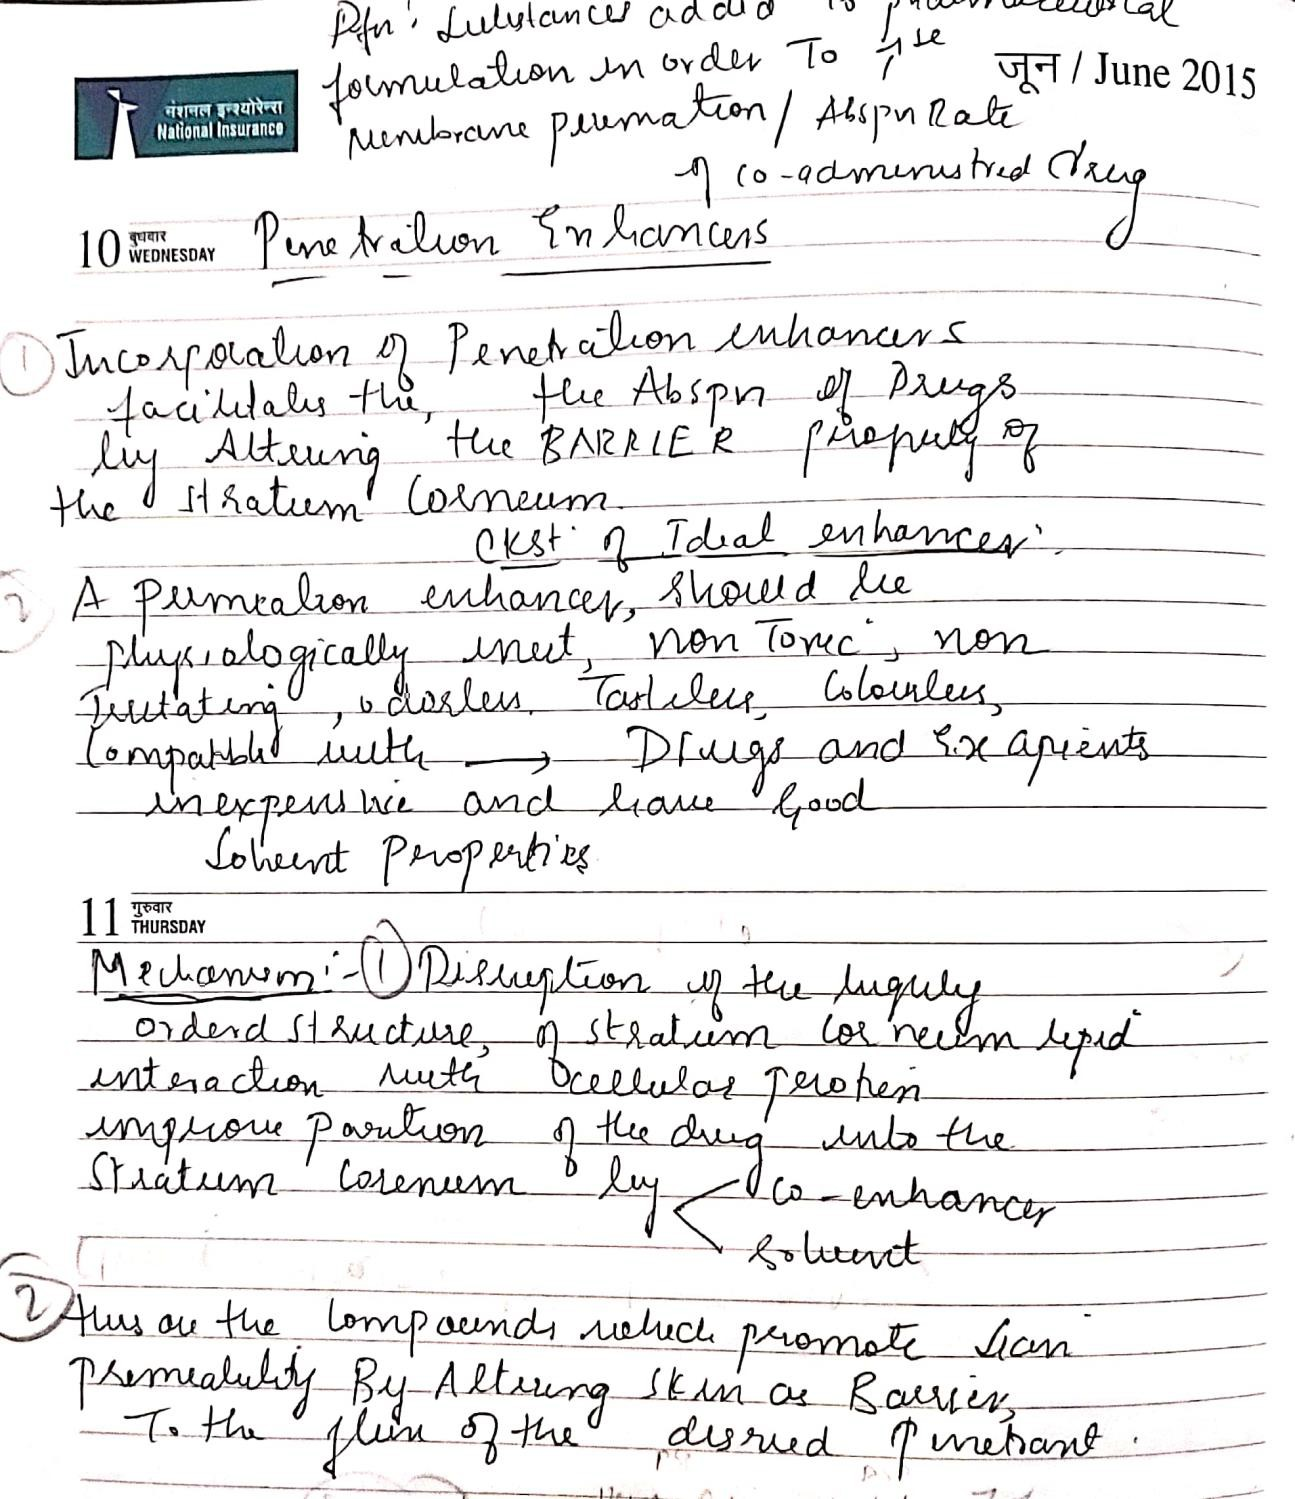 Dfn: Substances added to pharmaceutical
formulation in order To ↑se
जून / June 2015
नेशनल इन्श्योरेन्स
National Insurance
Membrane permation / Abspn Rate
of co-administred Drug
10 बुधवार WEDNESDAY
Penetration Enhancers
1 Incorporation of Penetration enhancers
facilitates the, the Abspn of Drugs
by Altering the BARRIER property of
the Stratum Corneum.
Ckst of Ideal enhancer:
2 A Permeation enhancer, should be
physiologically inert, non Toxic, non
Irritating, odorless, Tasteless, Colourless,
Compatible with → Drugs and Excipients
inexpensive and have Good
Solvent Properties
11 गुरुवार THURSDAY
Mechanism:- 1 Disruption of the highly
orderd structure, of stratum corneum lipid
interaction with cellular protien
improve Parition of the drug into the
Stratum Coreneum by co-enhancer
solvent
2 thus are the Compounds which promote skin
Premeability By Altering Skin as Barrier,
To the flux of the desried Penetrant.